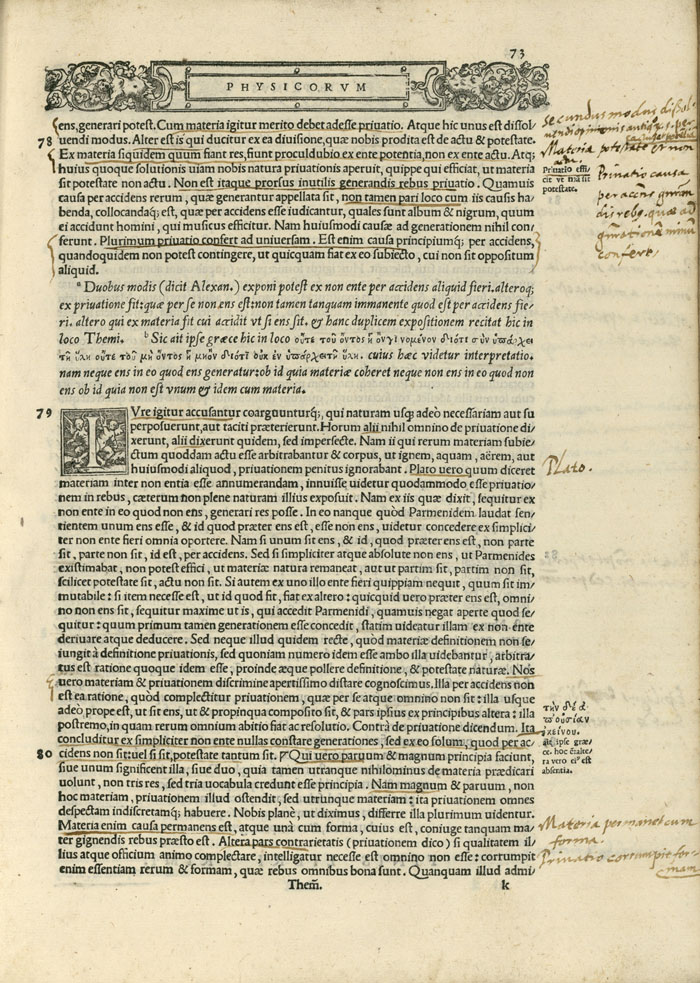 73
PHYSICORVM
ens, generari potest. Cum materia igitur merito debet adesse priuatio. Atque hic unus est dissol/
78 uendi modus. Alter est is qui ducitur ex ea diuisione, quæ nobis prodita est de actu & potestate.
Ex materia siquidem quum fiant res, fiunt proculdubio ex ente potentia, non ex ente actu. Atq;
huius quoque solutionis uiam nobis natura priuationis aperuit, quippe qui efficiat, ut materia
sit potestate non actu. Non est itaque prorsus inutilis generandis rebus priuatio. Quamuis
causa per accidens rerum, quæ generantur appellata sit, non tamen pari loco cum iis causis ha/
benda, collocandaq; est, quæ per accidens esse iudicantur, quales sunt album & nigrum, quum
ei accidunt homini, qui musicus efficitur. Nam huiusmodi causæ ad generationem nihil con/
ferunt. Plurimum priuatio confert ad uniuersam. Est enim causa principiumq; per accidens,
quandoquidem non potest contingere, ut quicquam fiat ex eo subiecto, cui non sit oppositum
aliquid.
a Duobus modis (dicit Alexan.) exponi potest ex non ente per accidens aliquid fieri. altero q;
ex priuatione fit: quæ per se non ens est: non tamen tanquam immanente quod est per accidens fie/
ri. altero qui ex materia fit cui accidit vt si ens sit. & hanc duplicem expositionem recitat hic in
loco Themi. b Sic ait ipse græce hic in loco οὔτε τοῦ ὄντος ἢ ὂν γινομένον διότι σὺν ὑπάρχει
τῇ ὕλῃ οὔτε τοῦ μὴ ὄντος ἢ μὴ ὂν διότι οὐκ ἓν ὑπάρχει τῇ ὕλῃ. cuius hæc videtur interpretatio.
nam neque ens in eo quod ens generatur: ob id quia materiæ coheret neque non ens in eo quod non
ens ob id quia non est vnum & idem cum materia.
79 IVre igitur accusantur coarguunturq;, qui naturam usq; adeò necessariam aut su
perposuerunt, aut taciti præterierunt. Horum alii nihil omnino de priuatione di
xerunt, alii dixerunt quidem, sed imperfecte. Nam ii qui rerum materiam subie/
ctum quoddam actu esse arbitrabantur & corpus, ut ignem, aquam, aërem, aut
huiusmodi aliquod, priuationem penitus ignorabant. Plato uero quum diceret
materiam inter non entia esse annumerandam, innuisse uidetur quodammodo esse priuatio/
nem in rebus, cæterum non plene naturam illius exposuit. Nam ex iis quæ dixit, sequitur ex
non ente in eo quod non ens, generari res posse. In eo nanque quòd Parmenidem laudat sen/
tientem unum ens esse, & id quod præter ens est, esse non ens, uidetur concedere ex simplici/
ter non ente fieri omnia oportere. Nam si unum sit ens, & id, quod præter ens est, non parte
sit, parte non sit, id est, per accidens. Sed si simpliciter atque absolute non ens, ut Parmenides
existimabat, non potest effici, ut materiæ natura remaneat, aut ut partim sit, partim non sit,
scilicet potestate sit, actu non sit. Si autem ex uno illo ente fieri quippiam nequit, quum sit im/
mutabile: si item necesse est, ut id quod fit, fiat ex altero: quicquid uero præter ens est, omni/
no non ens sit, sequitur maxime ut is, qui accedit Parmenidi, quamuis negat aperte quod se/
quitur: quum primum tamen generationem esse concedit, statim uideatur illam ex non ente
deriuare atque deducere. Sed neque illud quidem recte, quòd materiæ definitionem non se/
iungit à definitione priuationis, sed quoniam numero idem esse ambo illa uidebantur, arbitra/
tus est ratione quoque idem esse, proinde æque pollere definitione, & potestate naturæ. Nos
uero materiam & priuationem discrimine apertissimo distare cognoscimus. Illa per accidens non
est ea ratione, quòd complectitur priuationem, quæ per se atque omnino non sit: illa usque
adeò prope est, ut sit ens, ut & propinqua composito sit, & pars ipsius ex principibus altera: illa
postremo, in quam rerum omnium abitio fiat ac resolutio. Contrà de priuatione dicendum. Ita
concluditur ex simpliciter non ente nullas constare generationes, sed ex eo solum, quod per ac/
80 cidens non sit: uel si sit, potestate tantum sit. Qui uero paruum & magnum principia faciunt,
siue unum significent illa, siue duo, quia tamen utranque nihilominus de materia prædicari
uolunt, non tris res, sed tria uocabula credunt esse principia. Nam magnum & paruum, non
hoc materiam, priuationem illud ostendit, sed utrunque materiam: ita priuationem omnes
despectam indiscretamq; habuere. Nobis planè, ut diximus, differre illa plurimum uidentur.
Materia enim causa permanens est, atque unà cum forma, cuius est, coniuge tanquam ma/
ter gignendis rebus præsto est. Altera pars contrarietatis (priuationem dico) si qualitatem il/
lius atque officium animo complectare, intelligatur necesse est omnino non esse: corrumpit
enim essentiam rerum & formam, quæ rebus omnibus bona sunt. Quanquam illud admi/
Them̃. k
secundus modus dissol
Materia potestate et non
actu.
Priuatio effi
cit vt mã sit
potestate.
Priuatio causa
per accñs
dis rebq. quæ ad
confert
Plato.
τὴν διὰ
τὸ οὐσίαν
ἐκείνου.
ait ipse græ
ce. hoc ẽ alte
ra vero ei' est
absentia.
Materia permanet cum
forma.
Priuatio corrumpit for
mam